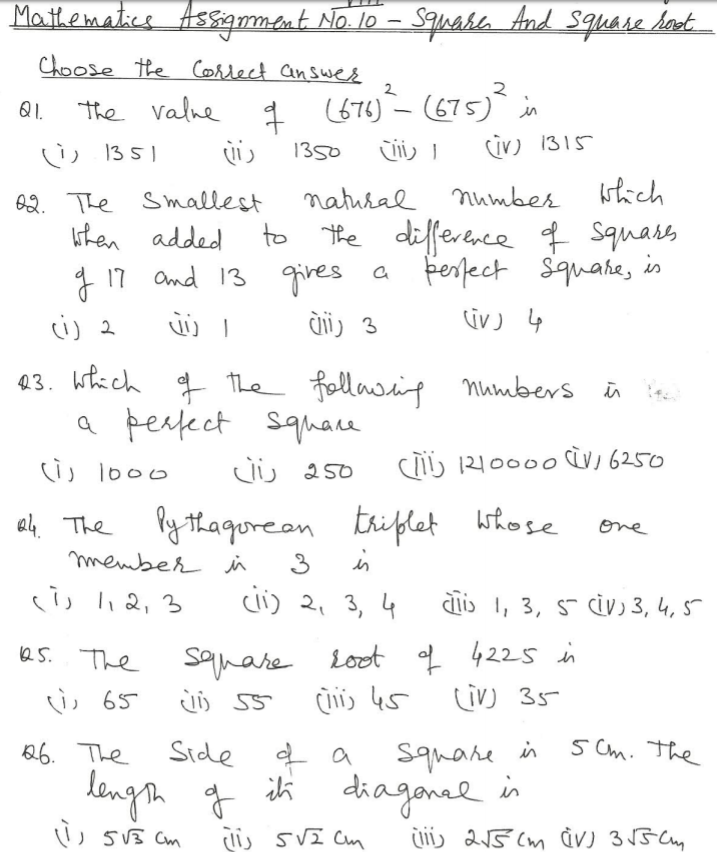 VIII
Mathematics Assignment No. 10 - Squares And Square root
Choose the Correct answer
Q1. The value of (676)² - (675)² is
(i) 1351 (ii) 1350 (iii) 1 (iv) 1315
Q2. The smallest natural number which
when added to the difference of squares
of 17 and 13 gives a perfect square, is
(i) 2 (ii) 1 (iii) 3 (iv) 4
Q3. Which of the following numbers is
a perfect square
(i) 1000 (ii) 250 (iii) 1210000 (iv) 6250
Q4. The Pythagorean triplet whose one
member is 3 is
(i) 1, 2, 3 (ii) 2, 3, 4 (iii) 1, 3, 5 (iv) 3, 4, 5
Q5. The square root of 4225 is
(i) 65 (ii) 55 (iii) 45 (iv) 35
Q6. The Side of a square is 5 cm. The
length of its diagonal is
(i) 5√3 cm (ii) 5√2 cm (iii) 2√5 cm (iv) 3√5 cm